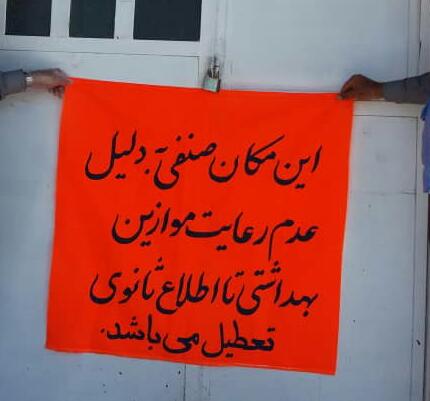 این مکان صنفی به دلیل
عدم رعایت موازین
بهداشتی تا اطلاع ثانوی
تعطیل می باشد.